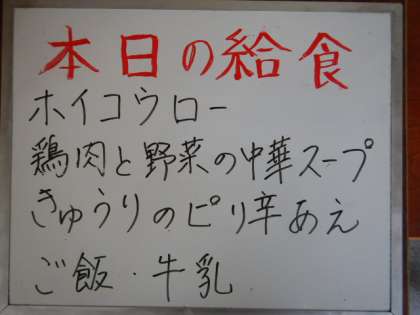 本日の給食
ホイコウロー
鶏肉と野菜の中華スープ
きゅうりのピリ辛あえ
ご飯・牛乳